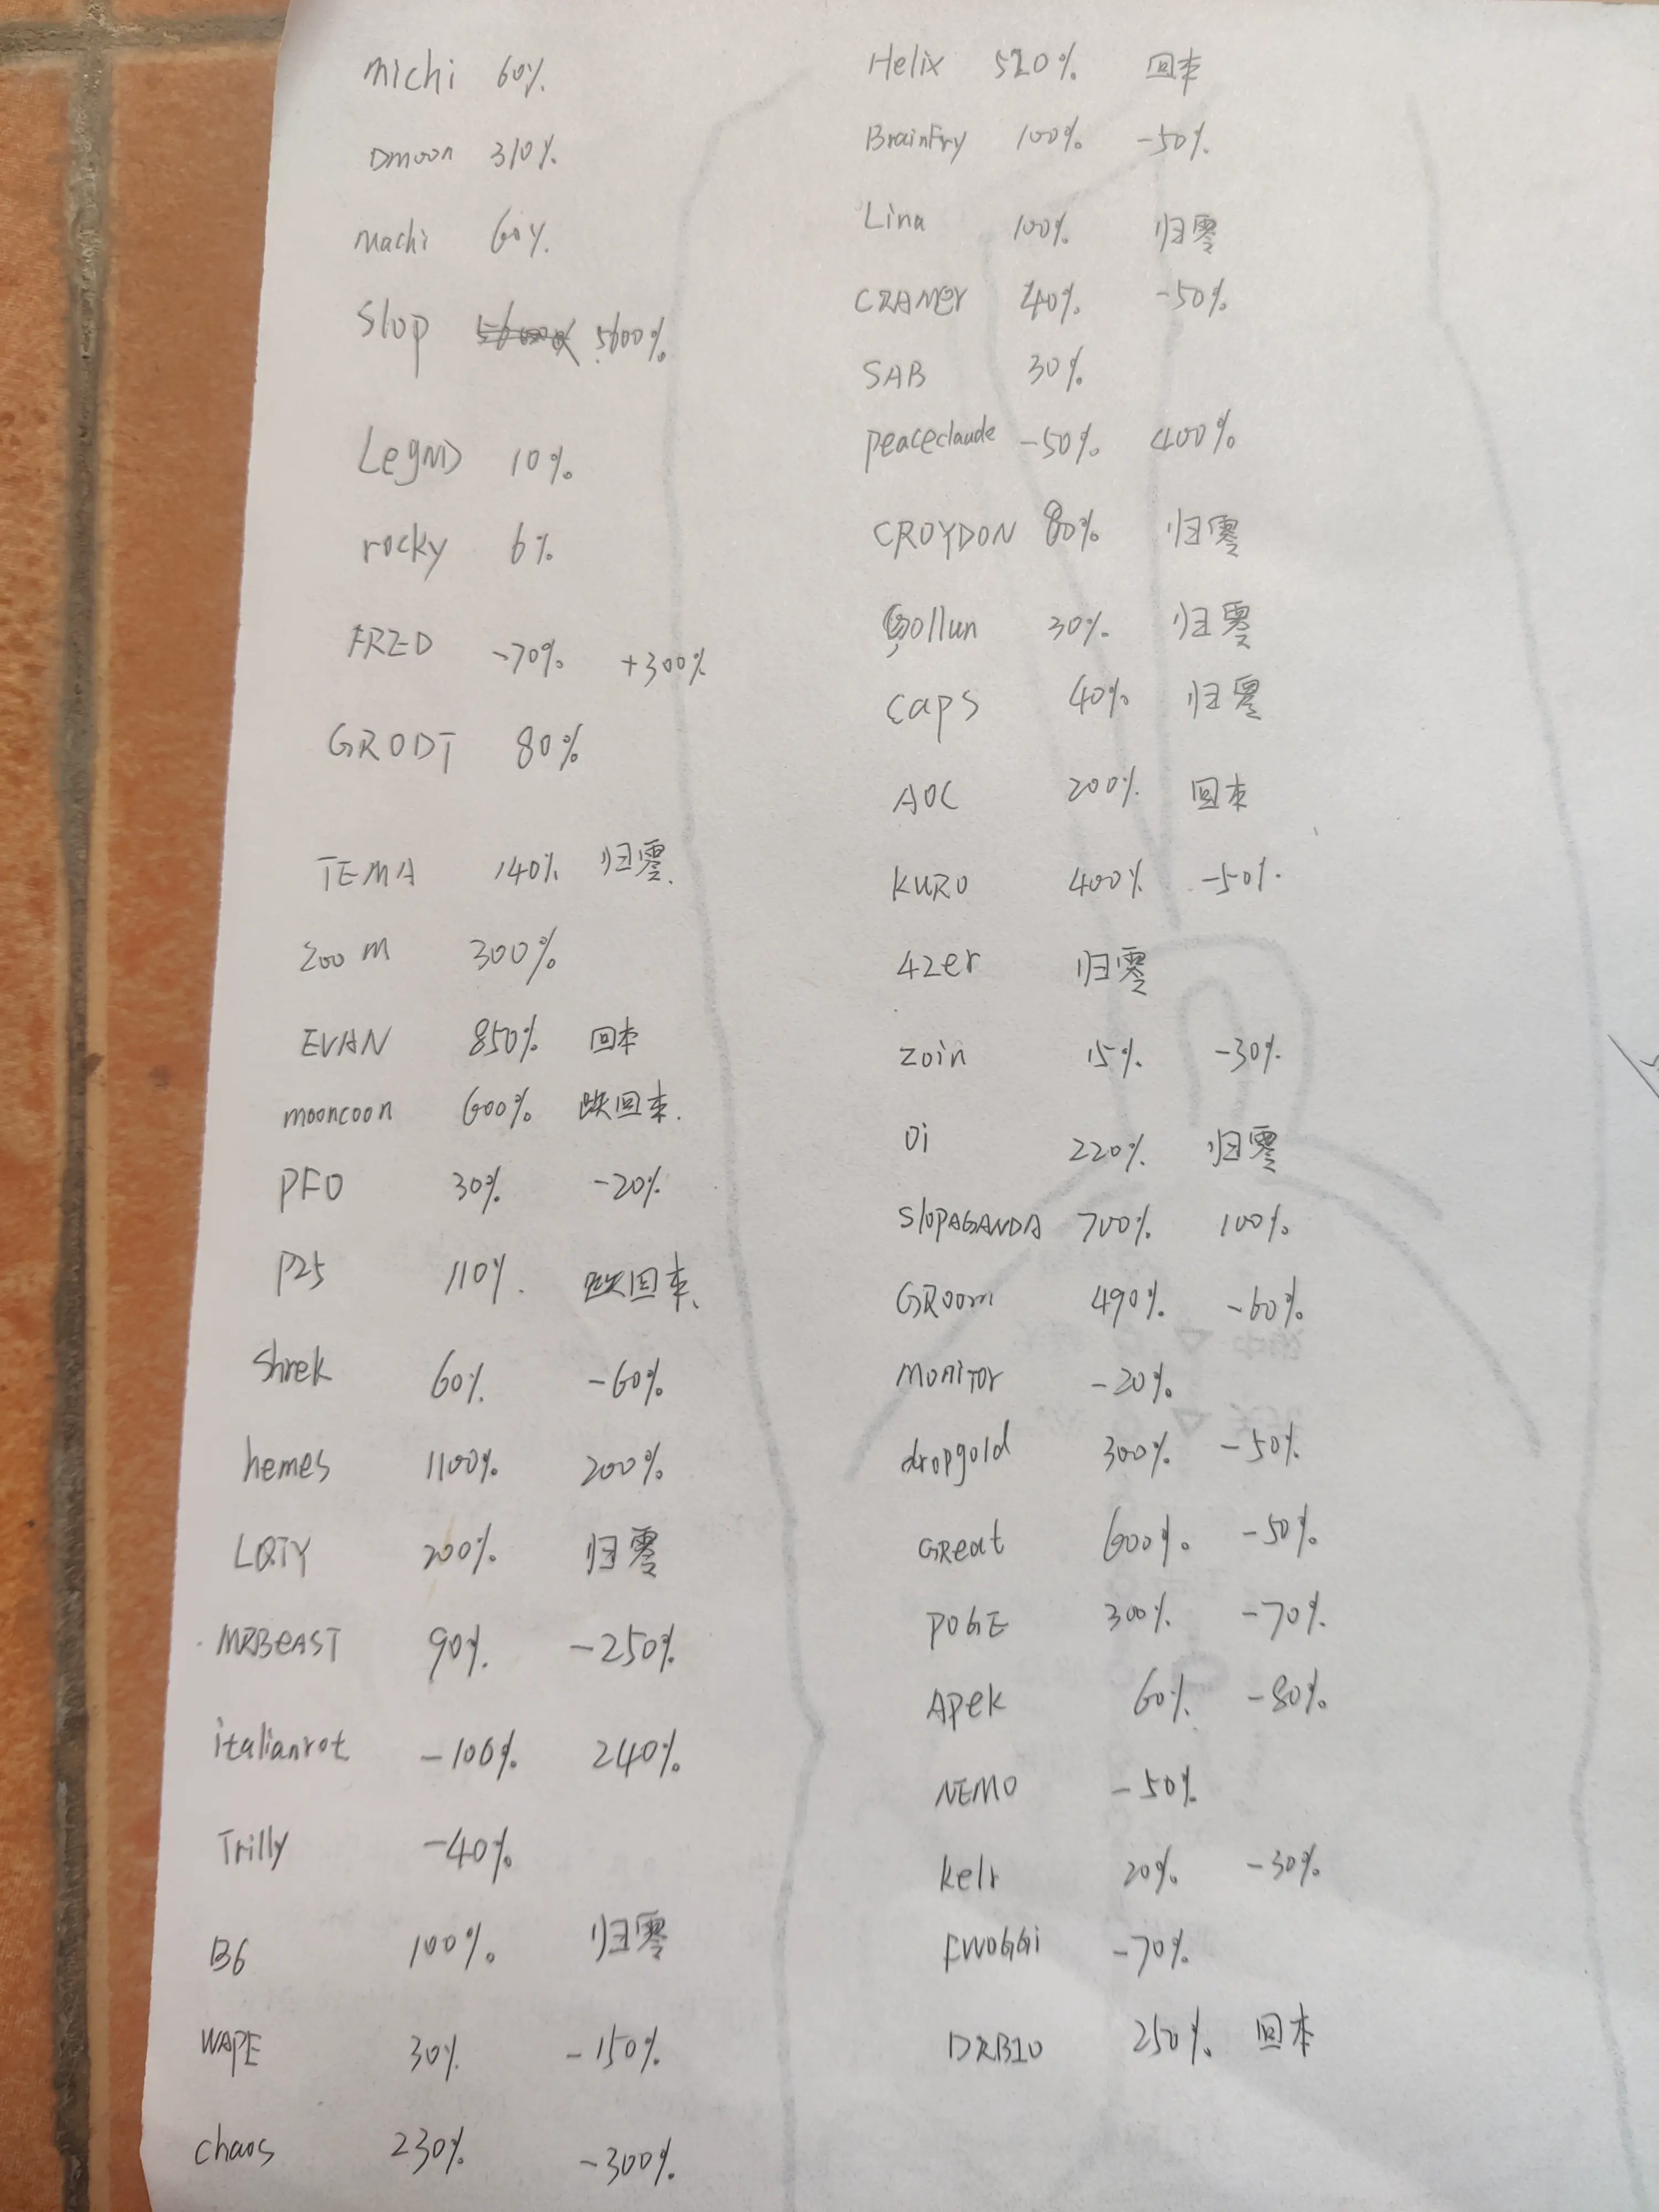 michi 60%
Dmoon 310%
machi 60%
Slop 5600%
LegND 10%
rocky 6%
FRED -70% +300%
GRODT 80%
TEMA 140% 归零.
zoom 300%
EVAN 850% 回本
mooncoon 600% 跌回本.
PFO 30% -20%
P25 110%. 跌回本、
Shrek 60% -60%
hemes 1100% 200%
LQTY 200% 归零
MRBeAST 90% -250%
italianrot -100% 240%
Trilly -40%
B6 100% 归零
WAPE 30% -150%
chaos 230% -300%
Helix 520% 回本
BrainFry 100% -50%
Lina 100% 归零
CRAMer 40% -50%
SAB 30%
peaceclaude -50% 400%
CROYDON 80% 归零
Gollun 30% 归零
caps 40% 归零
AOC 200% 回本
KURO 400% -50%
42er 归零
zoin 15% -30%
Oi 220% 归零
SlOPAGANDA 700% 100%
GRoom 490% -60%
moniTor -20%
dropgold 300% -50%
GReat 600% -50%
POGE 300% -70%
Apek 60% -80%
NEMO -50%
kelr 20% -30%
FWOGGi -70%
DRB10 250% 回本